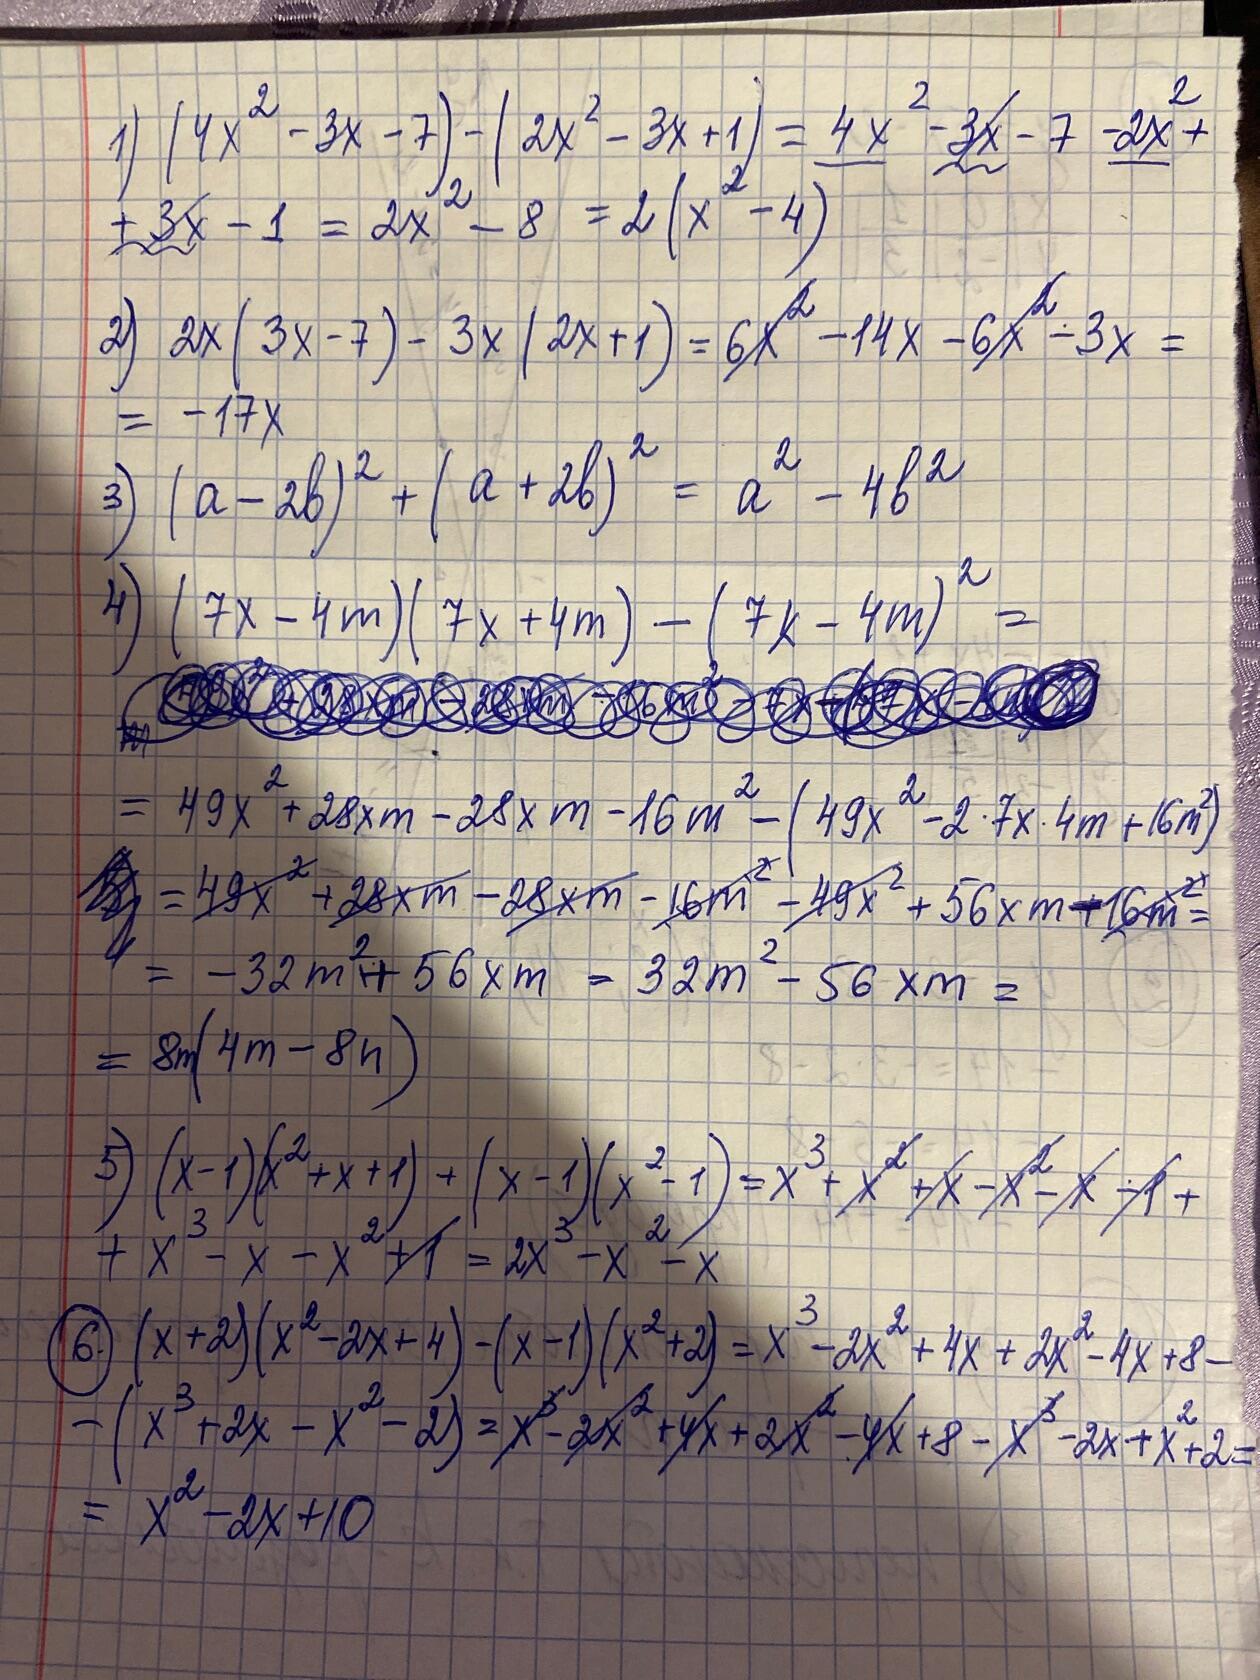 1) (4x² - 3x - 7) - (2x² - 3x + 1) = 4x² - 3x - 7 - 2x² +
+ 3x - 1 = 2x² - 8 = 2(x² - 4)
2) 2x(3x - 7) - 3x(2x + 1) = 6x² - 14x - 6x² - 3x =
= - 17x
3) (a - 2b)² + (a + 2b)² = a² - 4b²
4) (7x - 4m)(7x + 4m) - (7x - 4m)² =
= 49x² + 28xm - 28xm - 16m² - (49x² - 2·7x·4m + 16m²)
= 49x² + 28xm - 28xm - 16m² - 49x² + 56xm - 16m² =
= - 32m² + 56xm = 32m² - 56xm =
= 8m(4m - 8n)
5) (x - 1)(x² + x + 1) + (x - 1)(x² - 1) = x³ + x² + x - x² - x - 1 +
+ x³ - x - x² + 1 = 2x³ - x² - x
6. (x + 2)(x² - 2x + 4) - (x - 1)(x² + 2) = x³ - 2x² + 4x + 2x² - 4x + 8 -
- (x³ + 2x - x² - 2) = x³ - 2x² + 4x + 2x² - 4x + 8 - x³ - 2x + x² + 2 =
= x² - 2x + 10